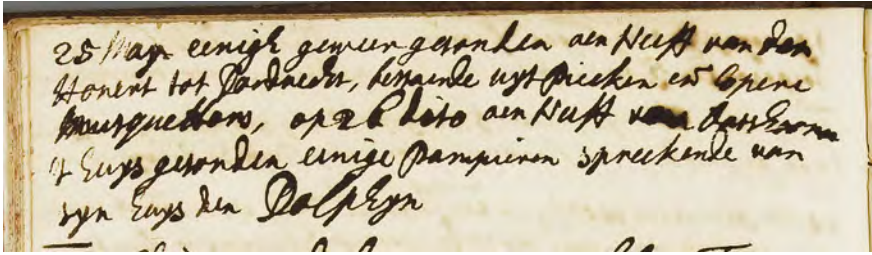 25 May eenigh geweer gesonden aen Neeff van den
Honert tot Dordrecht, bestaende uyt Piecken en Copere
Musquettons, op 26 dito aen Neeff van
t Huys gesonden eenige Pampieren spreekende van
syn Huys den Dolphyn